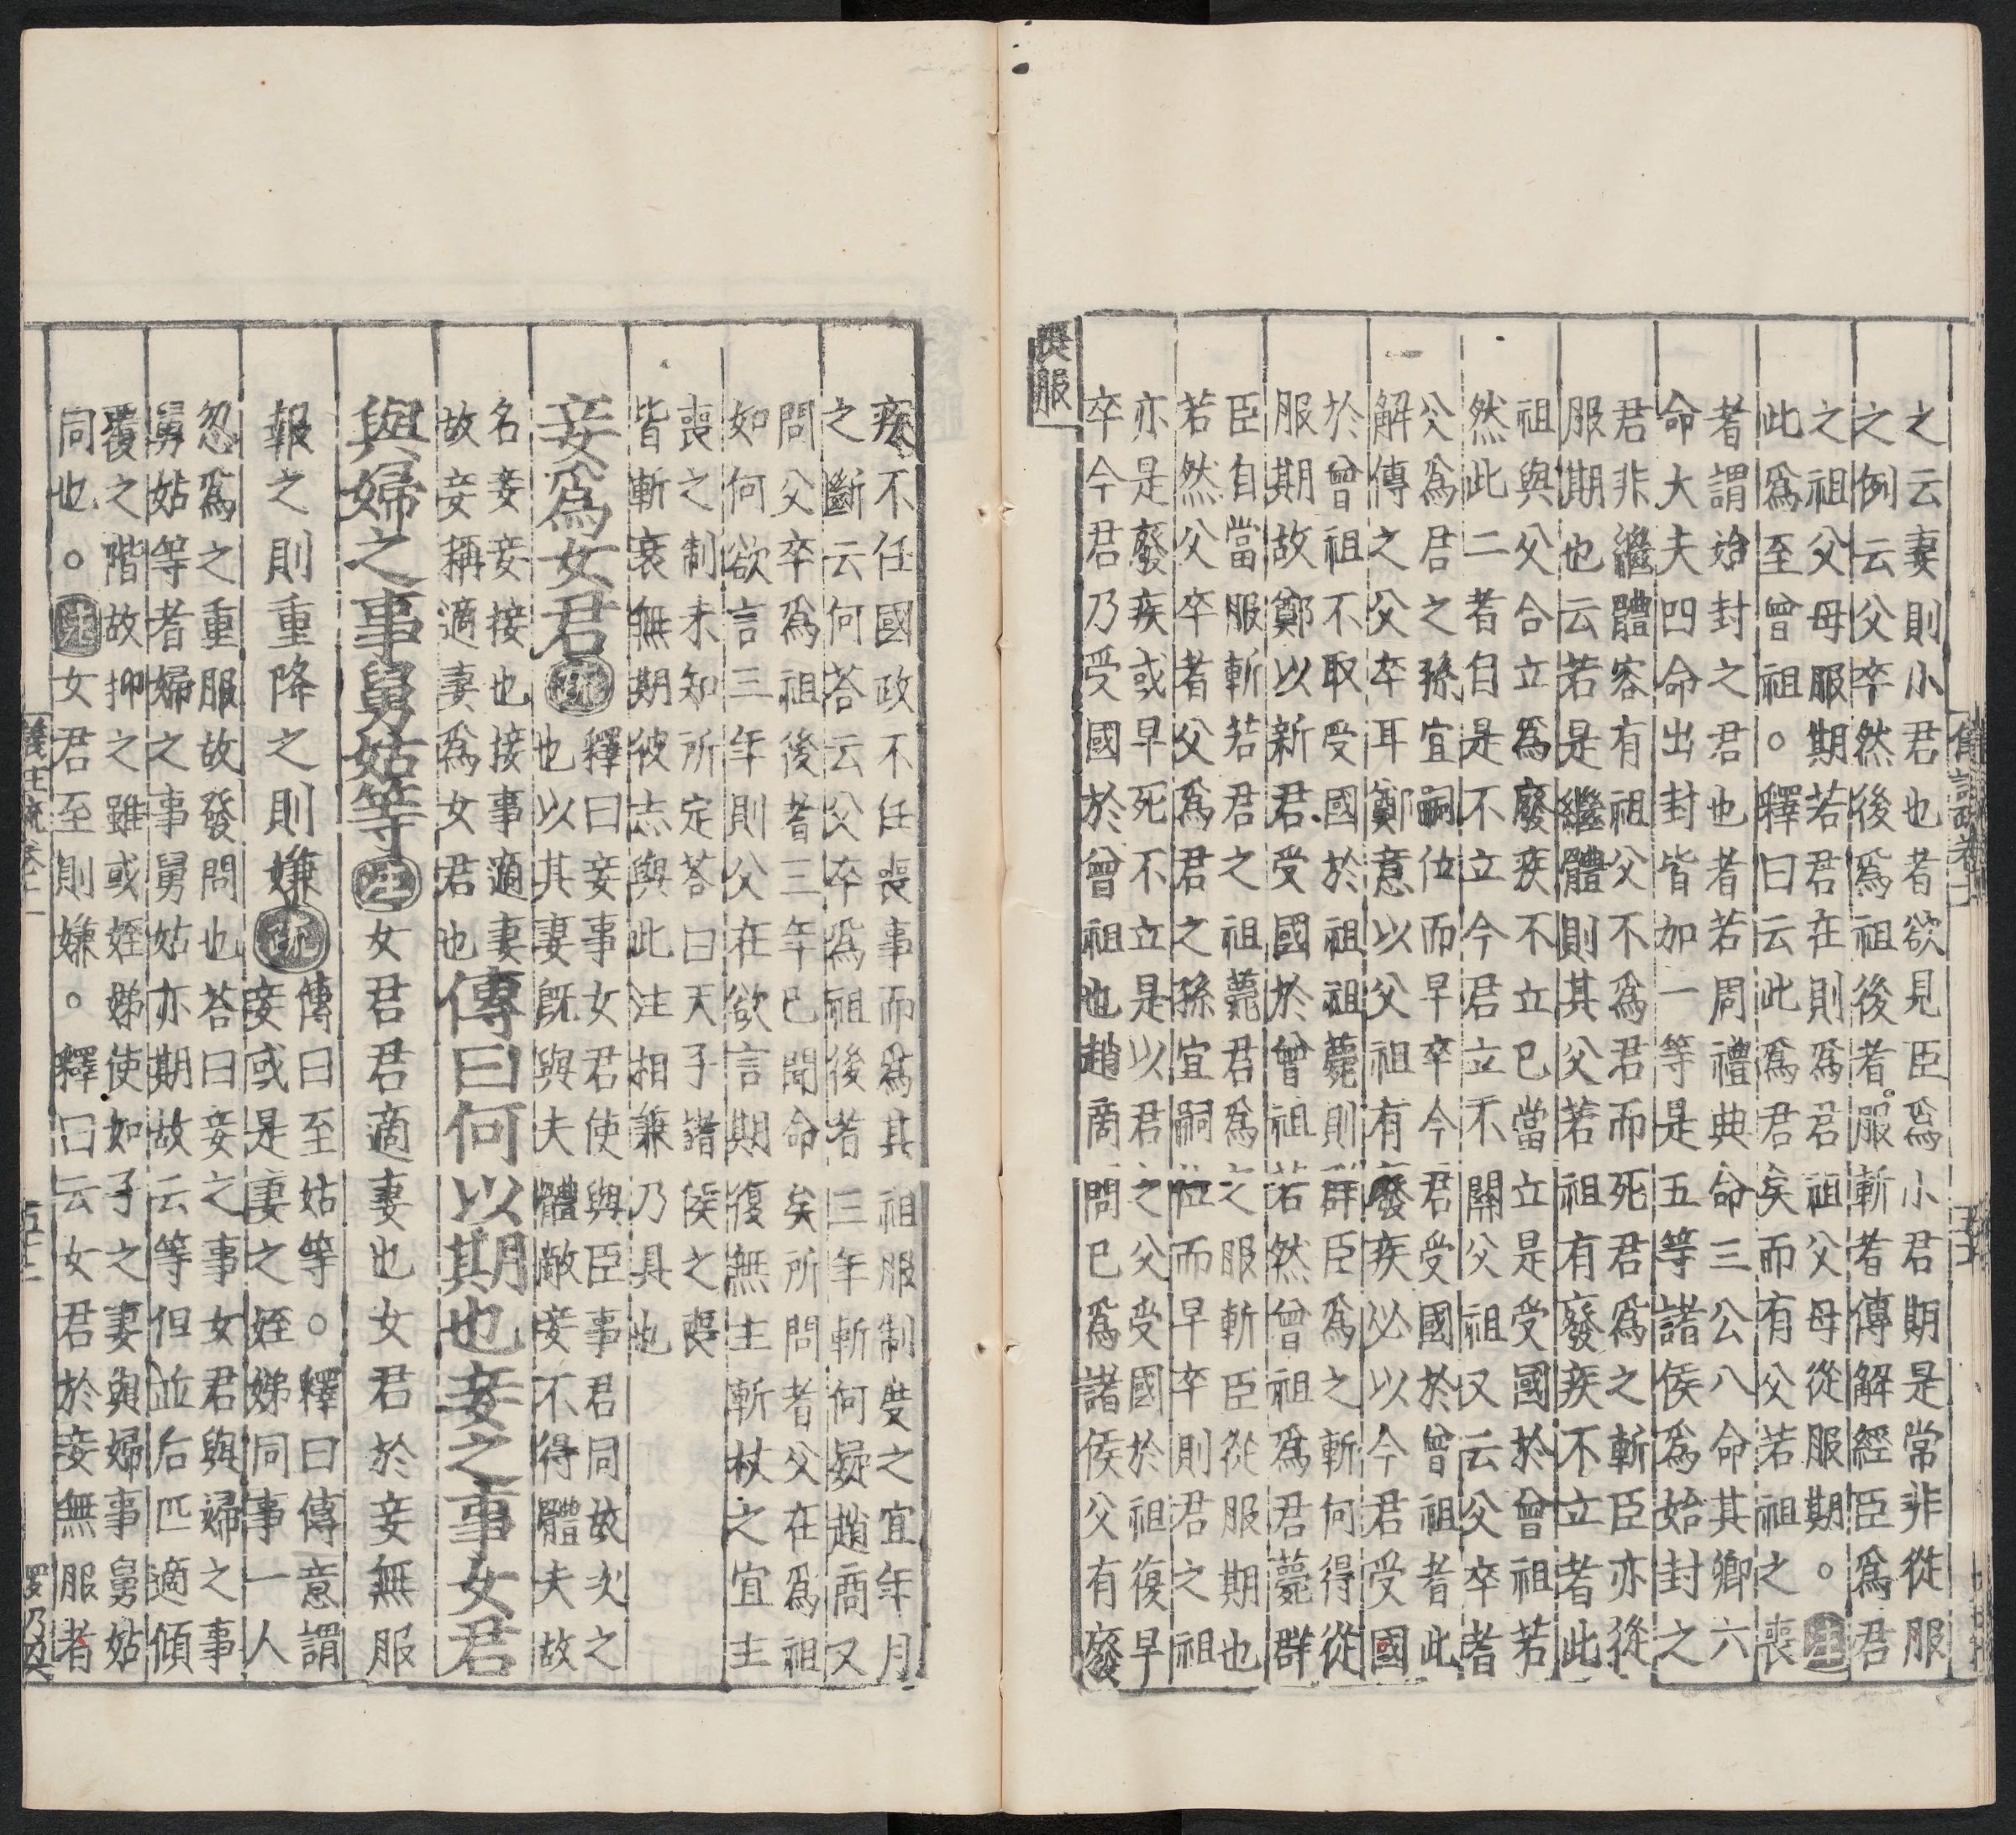 之云妻則小君也者欲見臣爲小君期是常非從服
之例云父卒然後爲祖後者服斬者傳解經臣爲君
之祖父母服期若君在則爲君祖父母從服期。注
此爲至曾祖。釋曰云此爲君矣而有父若祖之喪
者謂始封之君也者若周禮典命三公八命其卿六
命大夫四命出封皆加一等是五等諸侯爲始封之
君非繼體容有祖父不爲君而死君爲之斬臣亦從
服期也云若是繼體則其父若祖有廢疾不立者此
祖與父合立爲廢疾不立已當立是受國於曾祖若
然此二者自是不立今君立不關父祖又云父卒者
父爲君之孫宜嗣位而早卒今君受國於曾祖者此
解傳之父卒耳鄭意以父祖有廢疾必以今君受國
於曾祖不取受國於祖祖薨則群臣爲之斬何得從
服期故鄭以新君受國於曾祖若然曾祖爲君薨群
臣自當服斬若君之祖薨君爲之服斬臣從服期也
若然父卒者父爲君之孫宜嗣位而早卒則君之祖
亦是廢疾或早死不立是以君之父受國於祖復早
卒今君乃受國於曾祖也趙商問已爲諸侯父有廢
喪服
疾不任國政不任喪事而爲其祖服制度之宜年月
之斷云何荅云父卒爲祖後者三年斬何疑趙商又
問父卒爲祖後者三年已聞命矣所問者父在爲祖
如何欲言三年則父在欲言期復無主斬杖之宜主
喪之制未知所定荅曰天子諸侯之喪
皆斬衰無期彼志與此注相兼乃具也
妾爲女君疏釋曰妾事女君使與臣事君同故次之
也以其妻旣與夫體敵妾不得體夫故
名妾妾接也接事適妻
故妾稱適妻爲女君也傳曰何以期也妾之事女君
與婦之事舅姑等注女君君適妻也女君於妾無服
報之則重降之則嫌疏傳曰至姑等。釋曰傳意謂
妾或是妻之姪娣同事一人
忽爲之重服故發問也荅曰妾之事女君與婦之事
舅姑等者婦之事舅姑亦期故云等但並后匹適傾
覆之階故抑之雖或姪娣使如子之妻與婦事舅姑
同也。注女君至則嫌。釋曰云女君於妾無服者